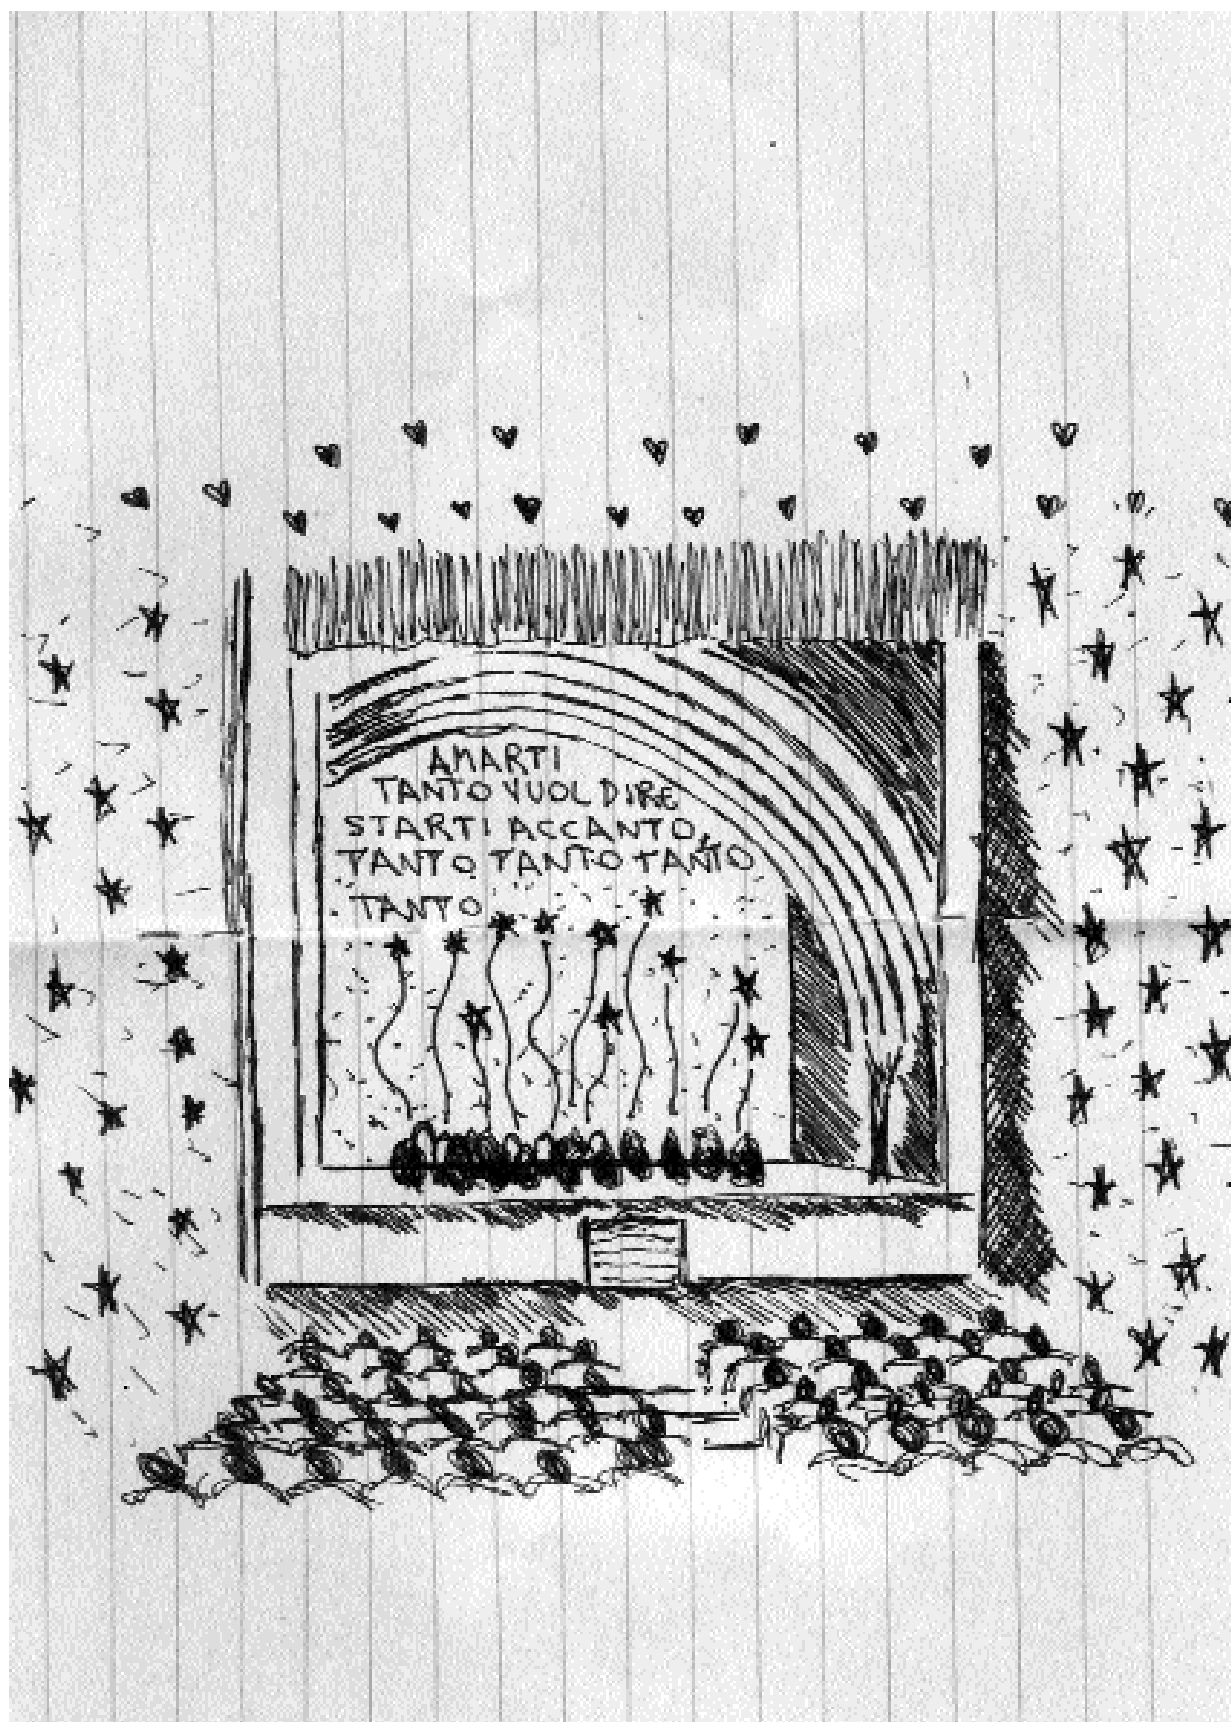 AMARTI
TANTO VUOL DIRE
STARTI ACCANTO,
TANTO TANTO TANTO
TANTO